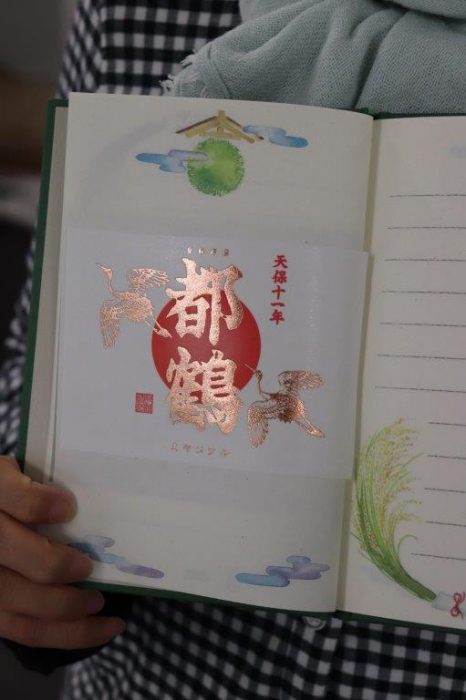 都鶴
天保十一年
ミヤコツル